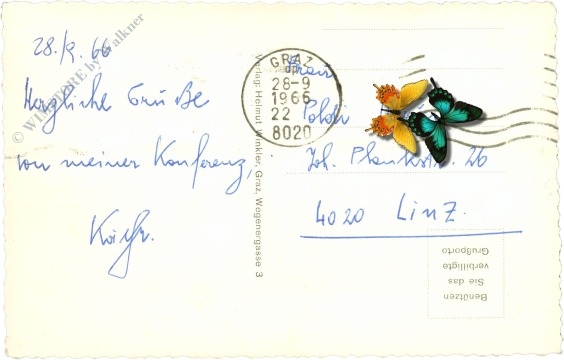 28./9. 66
Herzliche Grüße
von meiner Konferenz,
© WIMSTORE by Falkner
Verlag: Helmut Winkler, Graz, Wegenergasse 3
GRAZ
28-9
1966
22
8020
Frau
Poldi
Joh. Plankstr. 26
4020 Linz.
Benützen
Sie das
verbilligte
Grußporto